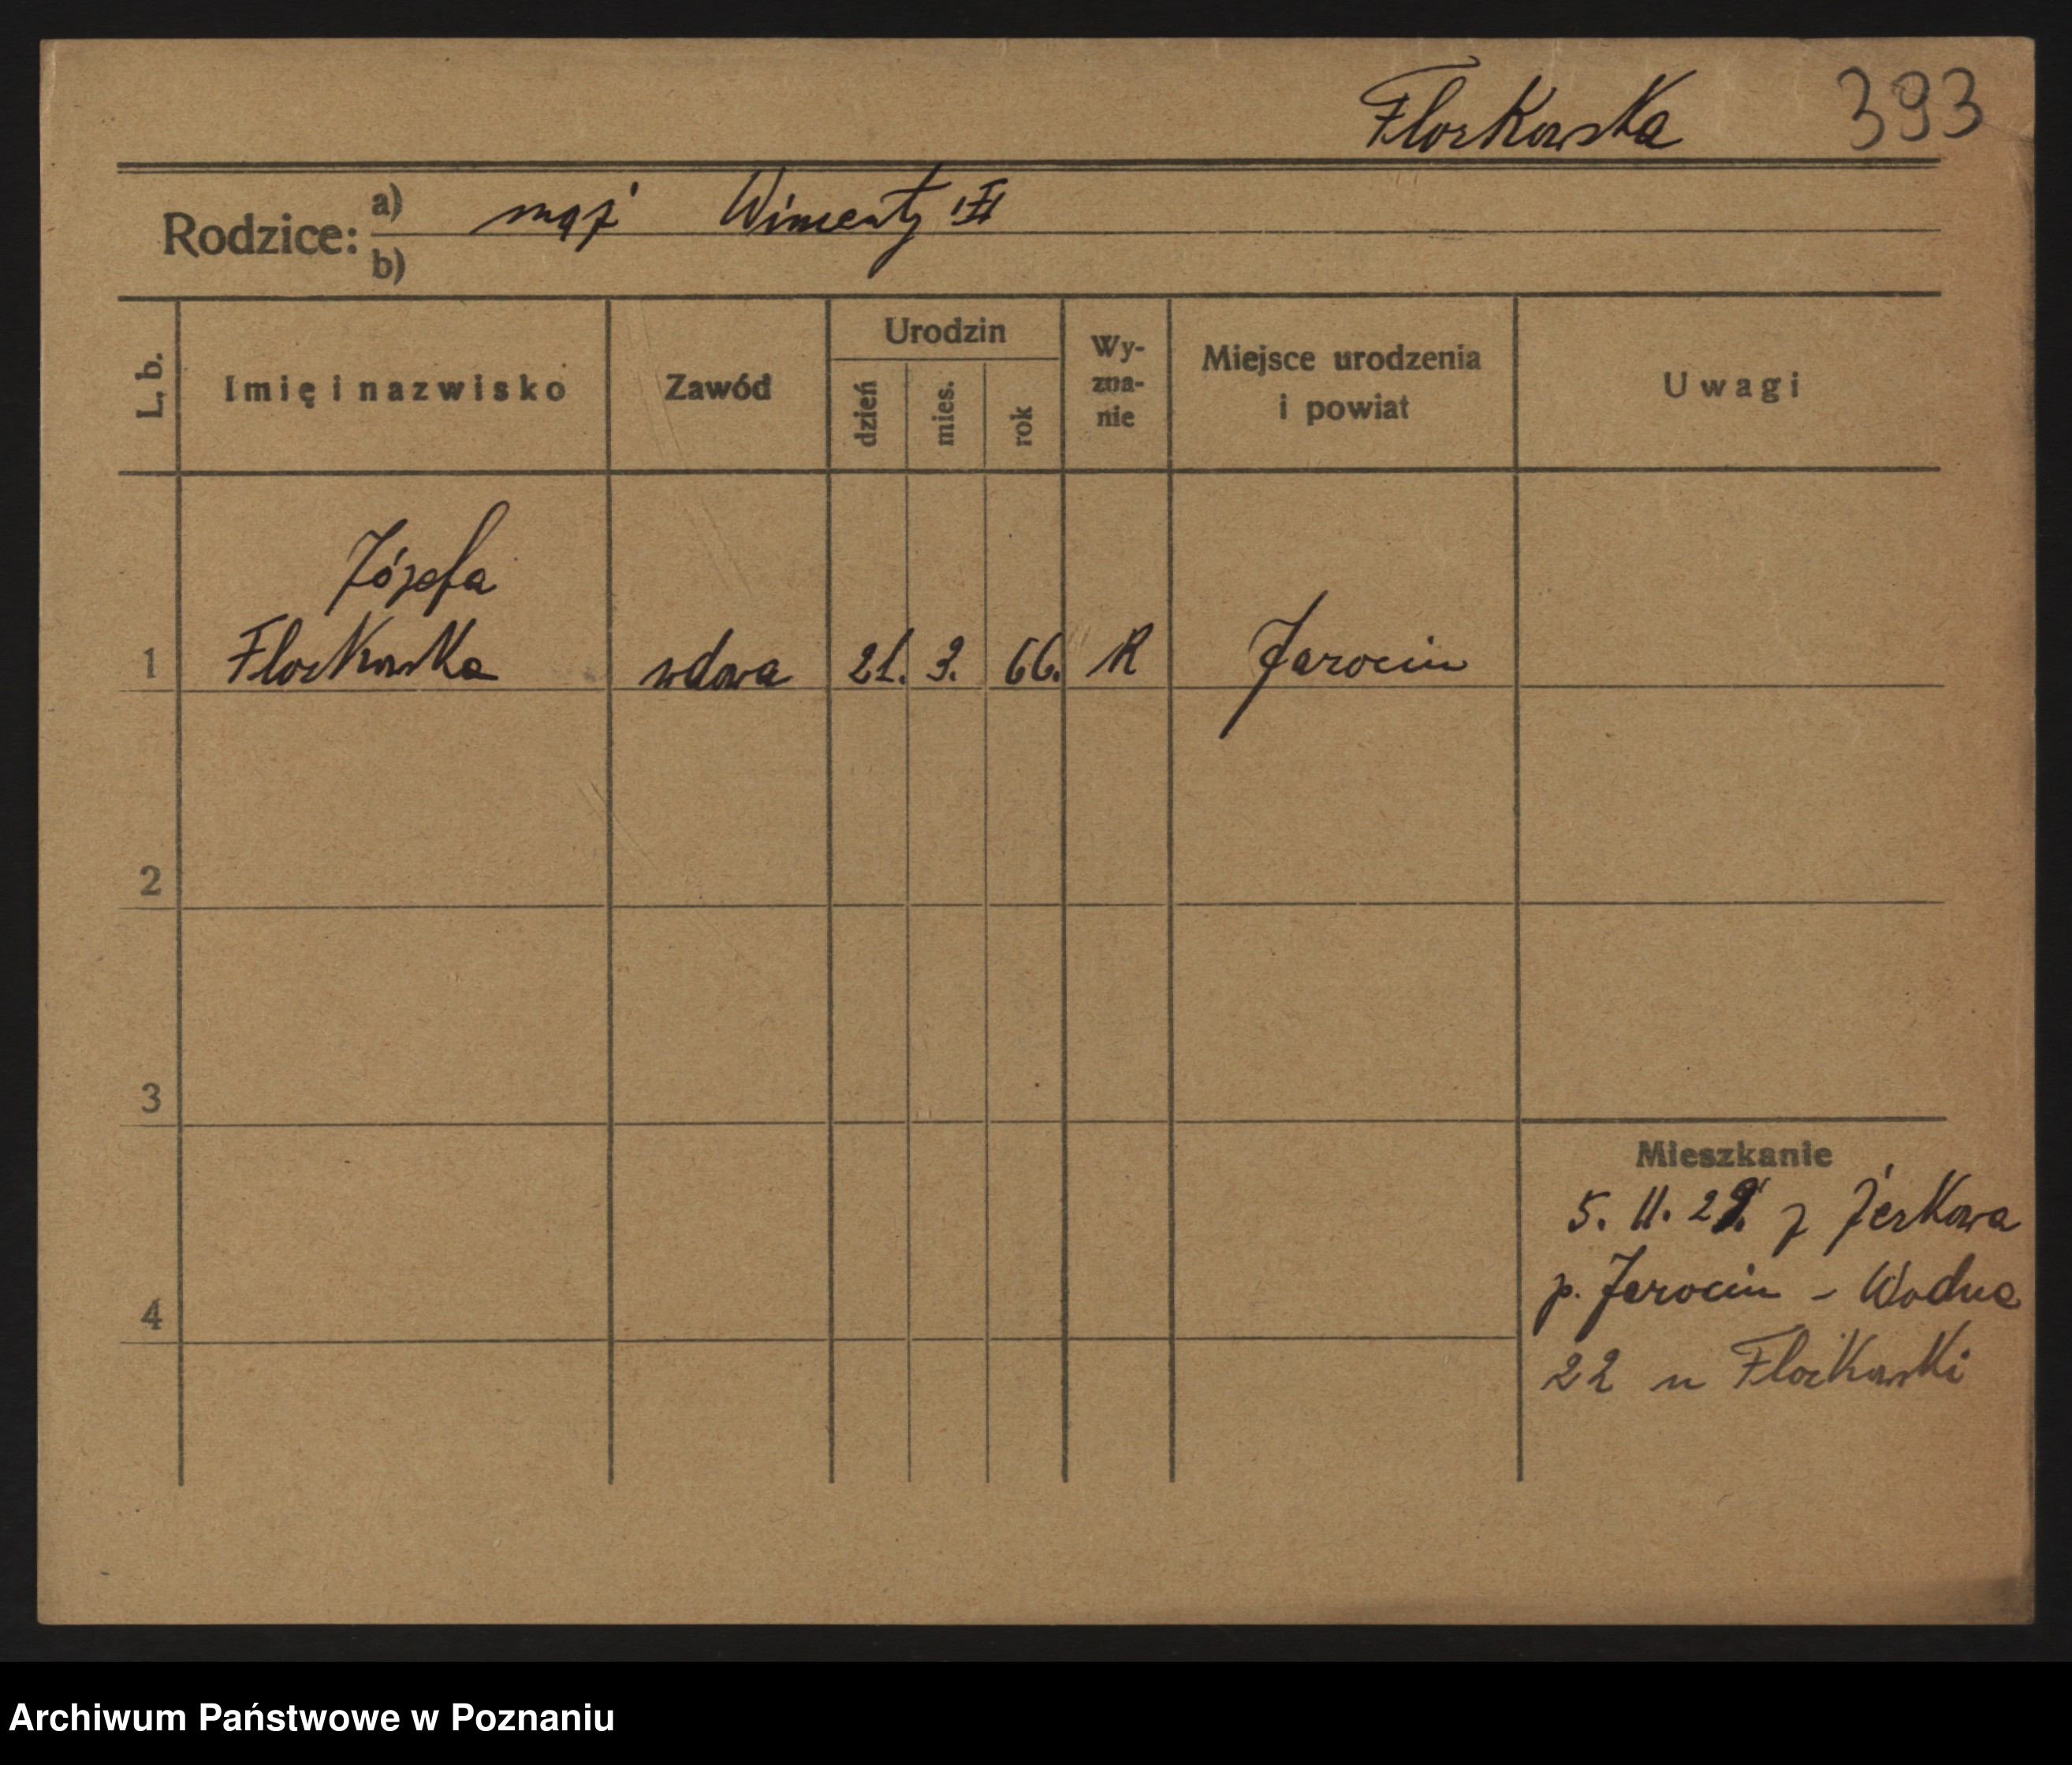 Florkowska 393
Rodzice: a) mąż Wincenty
b)
L, b. Imię i nazwisko Zawód Urodzin dzień mies. rok Wy-zna-nie Miejsce urodzenia i powiat Uwagi
Józefa
1 Florkowska wdowa 21. 3. 66. R Jarocin
2
3
Mieszkanie
5. 11. 29. z Żerkowa
p. Jarocin - Wodna
4
22 u Florkowski
Archiwum Państwowe w Poznaniu